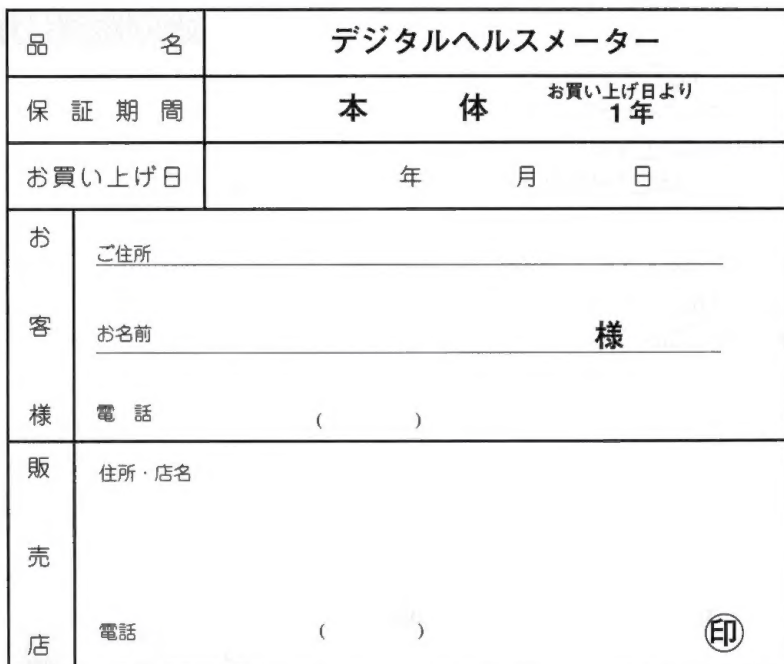 品名 デジタルヘルスメーター
保証期間 本体 お買い上げ日より
1年
お買い上げ日 年 月 日
お客様
ご住所
お名前 様
電話 ( )
販売店
住所・店名
電話 ( ) ㊞